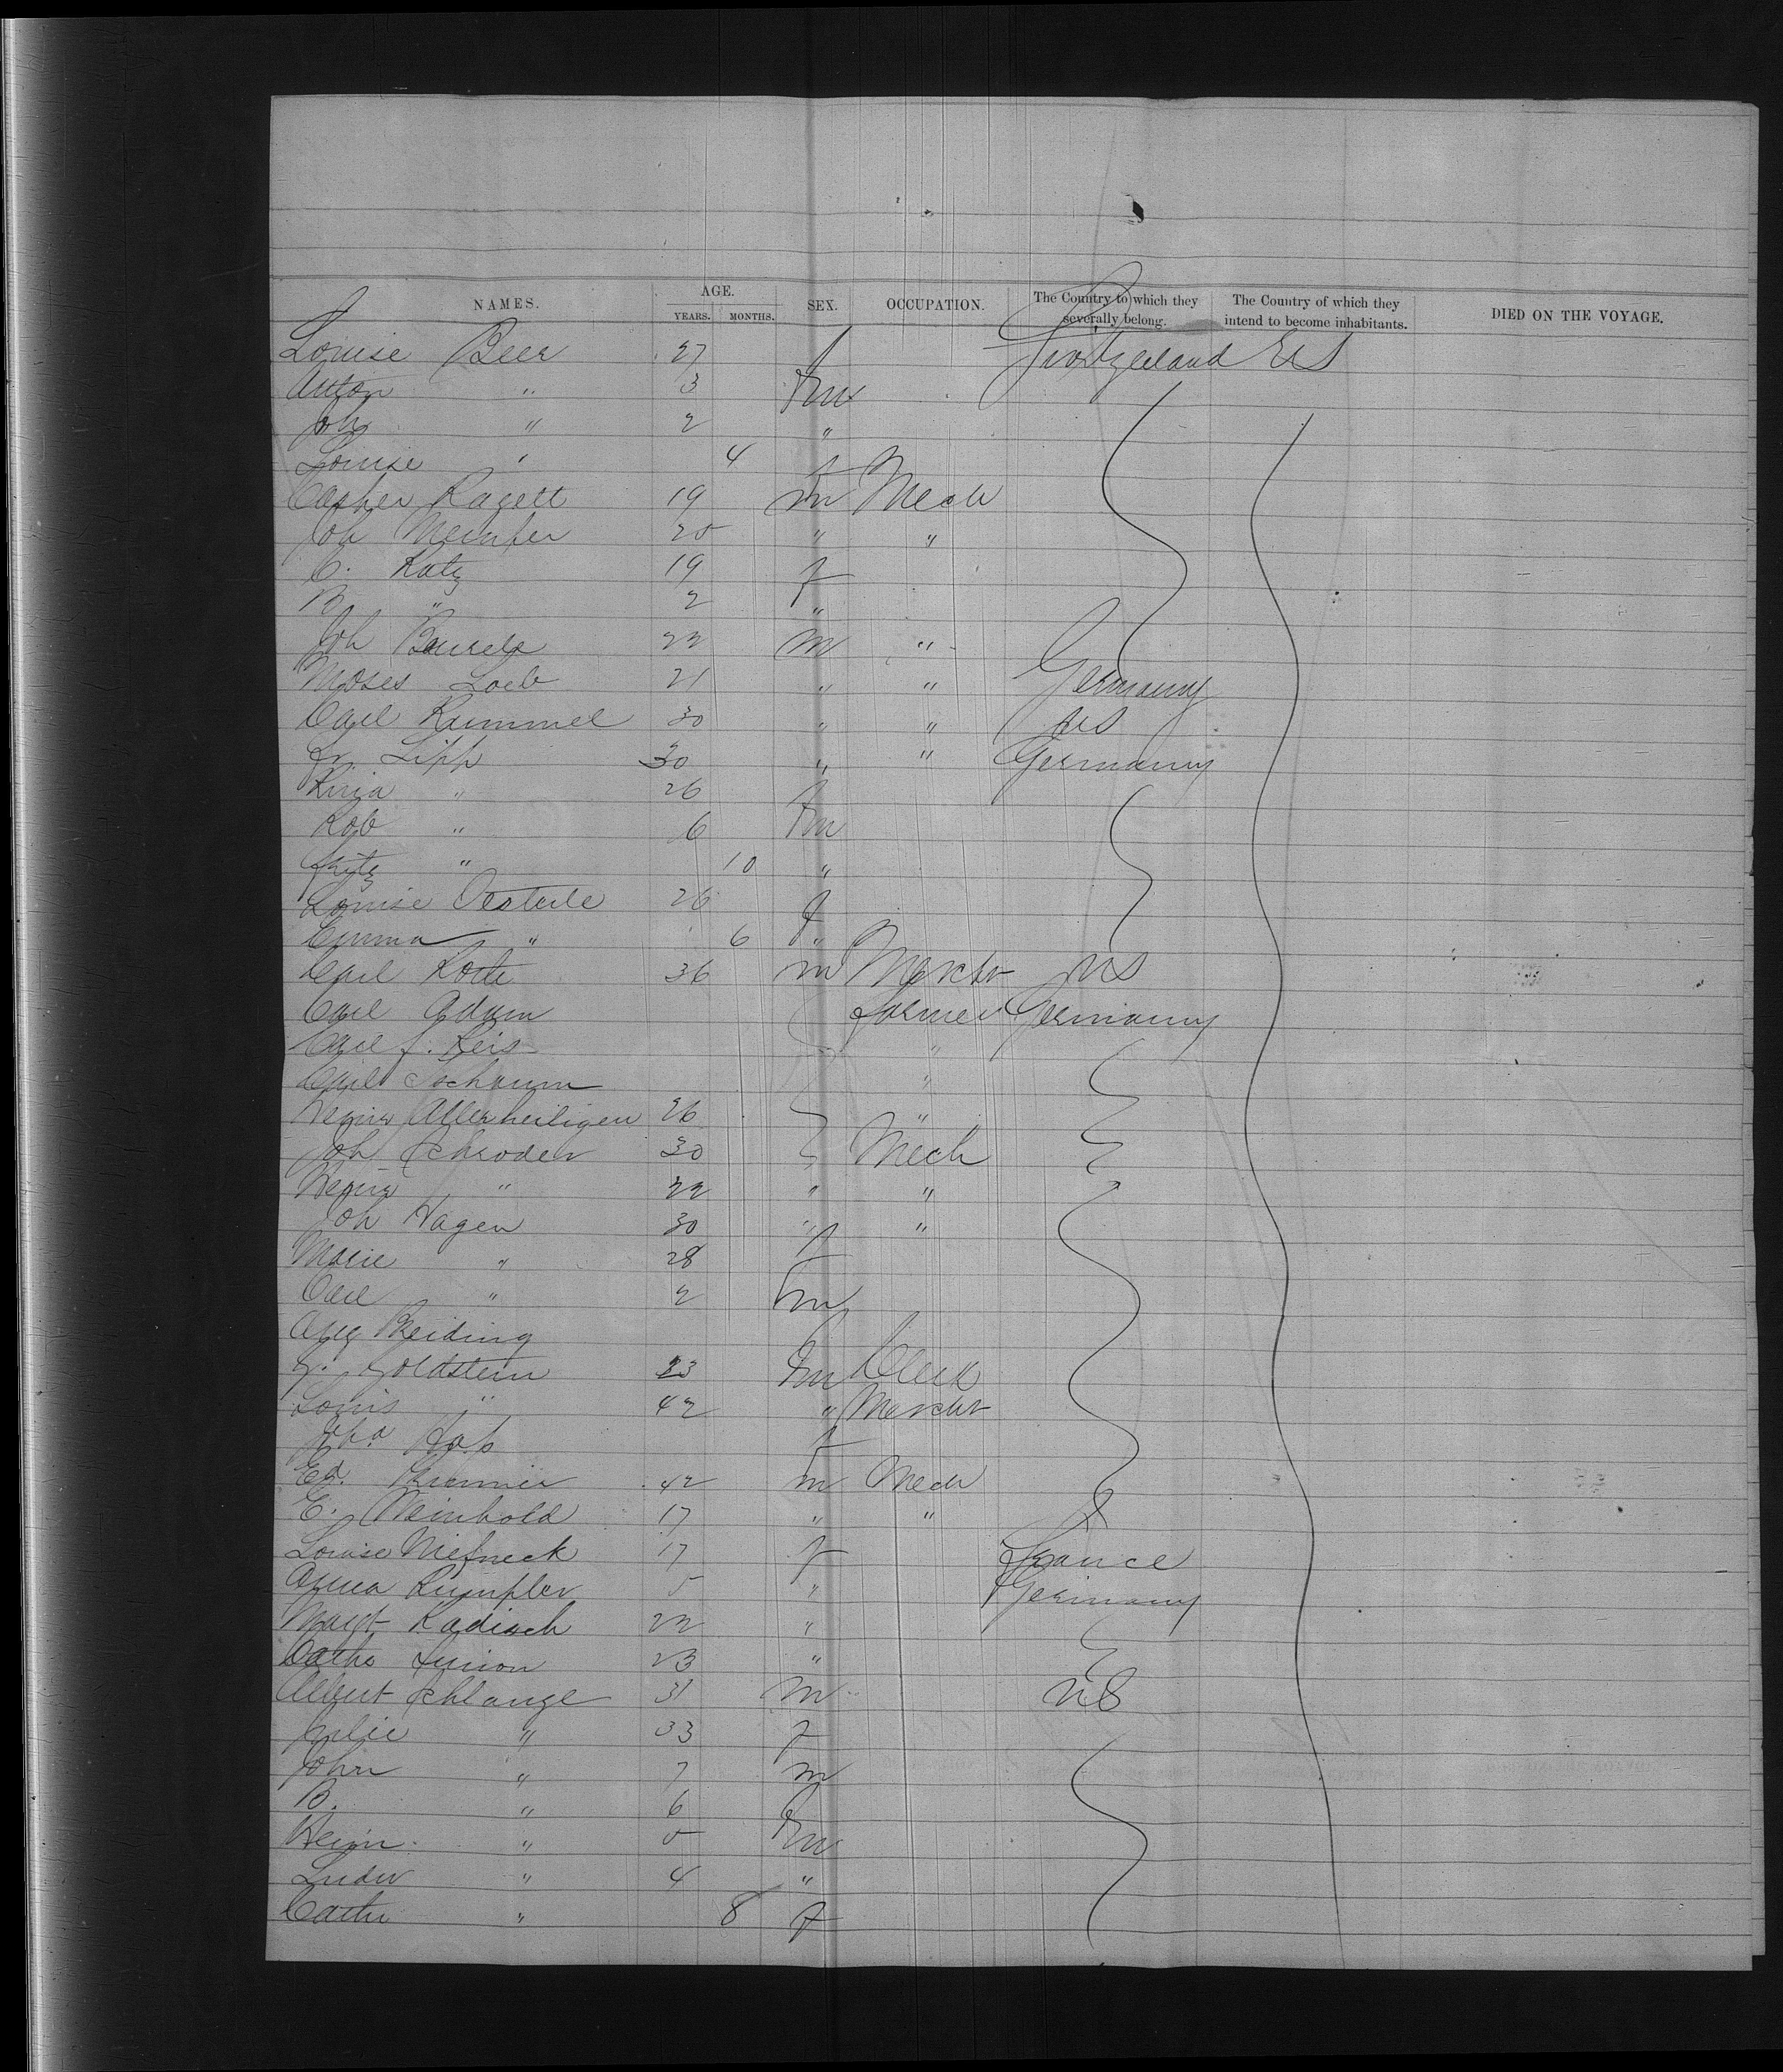 NAMES. AGE. SEX. OCCUPATION. The Country to which they severally belong. The Country of which they intend to become inhabitants. DIED ON THE VOYAGE.
YEARS. MONTHS.
Louise Beer 27 f Switzerland US
Anton " 3 m
Joh " 2 "
Louise " 4 f
Casper Ragett 19 m Mech
Joh 20 " "
C. Katz 19 f
B. " 2 "
Joh 22 m "
Moses Loeb 21 " " Germany
Carl Rummel 30 " " US
Fr. Lipp 30 " " Germany
" 26 f
Rob " 6 m
Fritz " 10 "
Louise Oesterle 26 f
Emma " 6 "
Carl 36 m Mercht US
Carl Adam Farmer Germany
Carl f. Reis "
Carl "
Heinr Allerheiligen 26 "
Joh Schroder 30 Mech
Heinr " 22 " "
Joh Hagen 30 " "
Marie " 28 f
Carl " 2 m
Aug Breiding
G. Goldstein 23 m Clerk
Louis " 42 " Mercht
f
Ed. 42 m Mech
E. Weinhold 17 " "
Louise 17 f France
Anna Rumpler 5 " Germany
Margt Kadisch 22 "
Cathe Simon 23 "
Albert Schlange 31 m US
Julie " 33 f
John " 7 m
B. " 6 f
Heinr. " 5 m
Ludw " 4 "
Cathr " 8 f